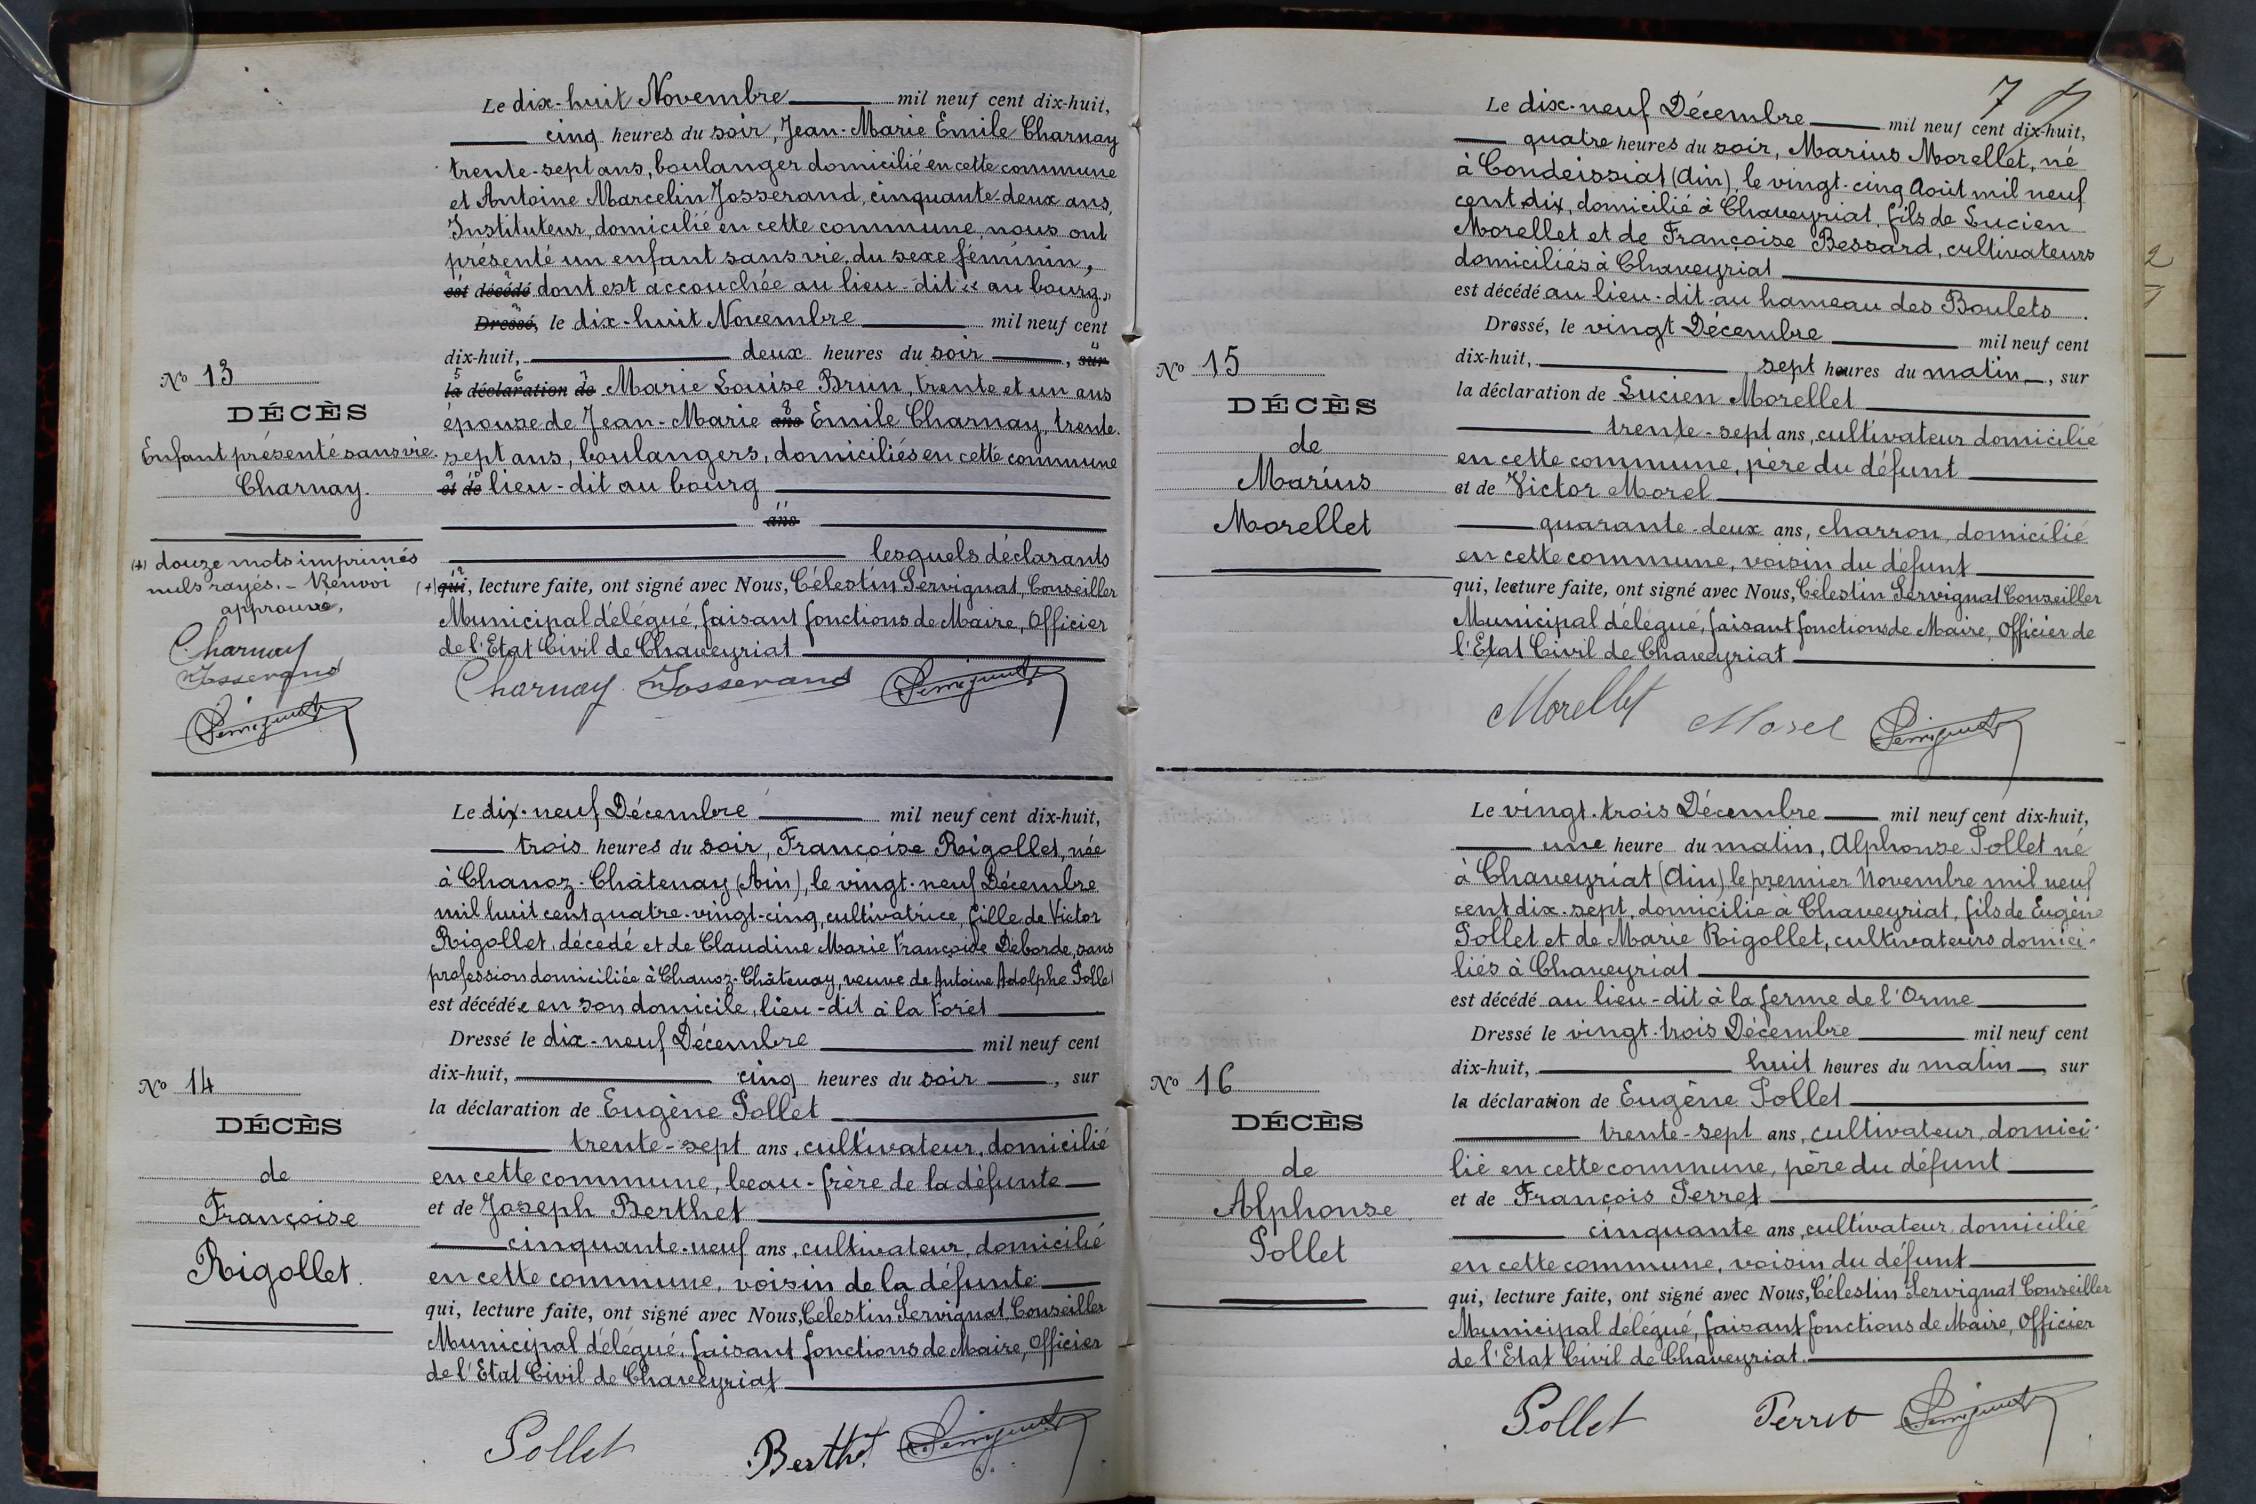 Le dix-huit Novembre mil neuf cent dix-huit,
cinq heures du soir, Jean-Marie Emile Charnay
trente-sept ans, boulanger domicilié en cette commune
et Antoine Marcelin Josserand, cinquante-deux ans,
Instituteur, domicilié en cette commune, nous ont
présenté un enfant sans vie, du sexe féminin,
est décédé dont est accouchée au lieu-dit "au bourg"
Dressé, le dix-huit Novembre mil neuf cent
dix-huit, deux heures du soir, sur
la déclaration de Marie Louise Brun, trente et un ans
épouse de Jean-Marie ans Emile Charnay, trente-
sept ans, boulangers, domiciliés en cette commune
et de lieu-dit au bourg
ans
lesquels déclarants
(+) qui, lecture faite, ont signé avec Nous, Célestin Servignat, Conseiller
Municipal délégué, faisant fonctions de Maire, Officier
de l'Etat Civil de Chaveyriat
Charnay Josserand Servignat
No 13
DÉCÈS
Enfant présenté sans vie
Charnay.
(+) douze mots imprimés
nuls rayés. - Renvoi
approuvé,
Charnay
Josserand
Servignat
Le dix-neuf Décembre mil neuf cent dix-huit,
trois heures du soir, Françoise Rigollet, née
à Chanoz-Châtenay (Ain), le vingt-neuf Décembre
mil huit cent quatre-vingt-cinq, cultivatrice, fille de Victor
Rigollet, décédé et de Claudine Marie Françoise Deborde, sans
profession domiciliée à Chanoz-Châtenay, veuve de Antoine Adolphe Pollet
est décédée en son domicile, lieu-dit à la Forêt
Dressé le dix-neuf Décembre mil neuf cent
dix-huit, cinq heures du soir, sur
la déclaration de Eugène Pollet
trente-sept ans, cultivateur, domicilié
en cette commune, beau-frère de la défunte
et de Joseph Berthet
cinquante-neuf ans, cultivateur, domicilié
en cette commune, voisin de la défunte
qui, lecture faite, ont signé avec Nous, Célestin Servignat, Conseiller
Municipal délégué, faisant fonctions de Maire, Officier
de l'Etat Civil de Chaveyriat
Pollet Berthet Servignat
No 14
DÉCÈS
de
Françoise
Rigollet.
7
Le dix-neuf Décembre mil neuf cent dix-huit,
quatre heures du soir, Marius Morellet, né
à Condeissiat (Ain), le vingt-cinq Août mil neuf
cent dix, domicilié à Chaveyriat, fils de Lucien
Morellet et de Françoise Bessard, cultivateurs
domiciliés à Chaveyriat
est décédé au lieu-dit au hameau des Boulets.
Dressé, le vingt Décembre mil neuf cent
dix-huit, sept heures du matin, sur
la déclaration de Lucien Morellet
trente-sept ans, cultivateur domicilié
en cette commune, père du défunt
et de Victor Morel
quarante-deux ans, charron, domicilié
en cette commune, voisin du défunt
qui, lecture faite, ont signé avec Nous, Célestin Servignat Conseiller
Municipal délégué, faisant fonctions de Maire, Officier de
l'Etat Civil de Chaveyriat
Morellet Morel Servignat
No 15
DÉCÈS
de
Marius
Morellet
Le vingt-trois Décembre mil neuf cent dix-huit,
une heure du matin, Alphonse Pollet né
à Chaveyriat (Ain) le premier Novembre mil neuf
cent dix-sept, domicilié à Chaveyriat, fils de Eugène
Pollet et de Marie Rigollet, cultivateurs domici-
liés à Chaveyriat
est décédé au lieu-dit à la ferme de l'Orme
Dressé le vingt-trois Décembre mil neuf cent
dix-huit, huit heures du matin, sur
la déclaration de Eugène Pollet
trente-sept ans, cultivateur, domici-
lié en cette commune, père du défunt
et de François Perret
cinquante ans, cultivateur domicilié
en cette commune, voisin du défunt
qui, lecture faite, ont signé avec Nous, Célestin Servignat Conseiller
Municipal délégué, faisant fonctions de Maire, Officier
de l'Etat Civil de Chaveyriat.
Pollet Perret Servignat
No 16
DÉCÈS
de
Alphonse
Pollet